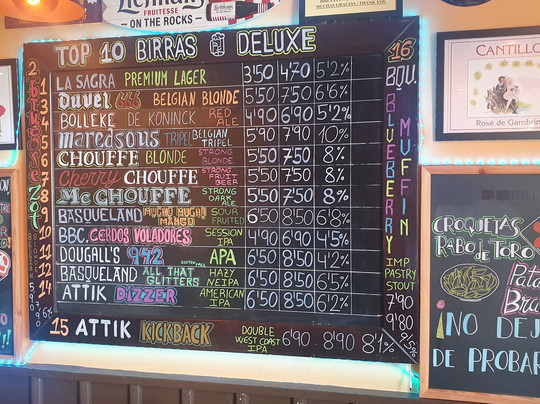 FRUITESSE
ON THE ROCKS
MUCHAS GRACIAS / THANK YOU
TOP 10 BIRRAS DELUXE
1 LA SAGRA PREMIUM LAGER 3'50 4'70 5'2%
3 Duvel 666 BELGIAN BLONDE 5'50 7'50 6'6%
4 BOLLEKE DE KONINCK RED ALE 4'90 6'90 5'2%
5 maredsous TRIPEL BELGIAN TRIPEL 5'90 7'90 10%
6 CHOUFFE BLONDE STRONG BLONDE 5'50 7'50 8%
7 Cherry CHOUFFE STRONG FRUIT BEER 5'50 7'50 8%
8 Mc CHOUFFE STRONG DARK ALE 5'50 7'50 8%
9 BASQUELAND MUCHO MUCHO MANGO SOUR FRUITED 6'50 8'50 6'8%
10 BBC. CERDOS VOLADORES SESSION IPA 4'90 6'90 4'5%
11 DOUGALL'S 942 APA 6'50 8'50 7%
12 BASQUELAND ALL THAT GLITTERS HAZY NEIPA 6'50 8'50 6'5%
14 ATTIK DIZZER AMERICAN IPA 6'50 8'50 6'2%
15 ATTIK KICKBACK DOUBLE WEST COAST IPA 6'90 8'90 8'1%
2 brugse Zot
16 BQU.
BLUEBERRY MUFFIN
IMP PASTRY STOUT
7'90
9'80
9'5%
CANTILLO
Rosé de Gambrin
CROQUETAS
RABO de TORO
Pata
Bra
¡NO DEJ
DE PROBAR